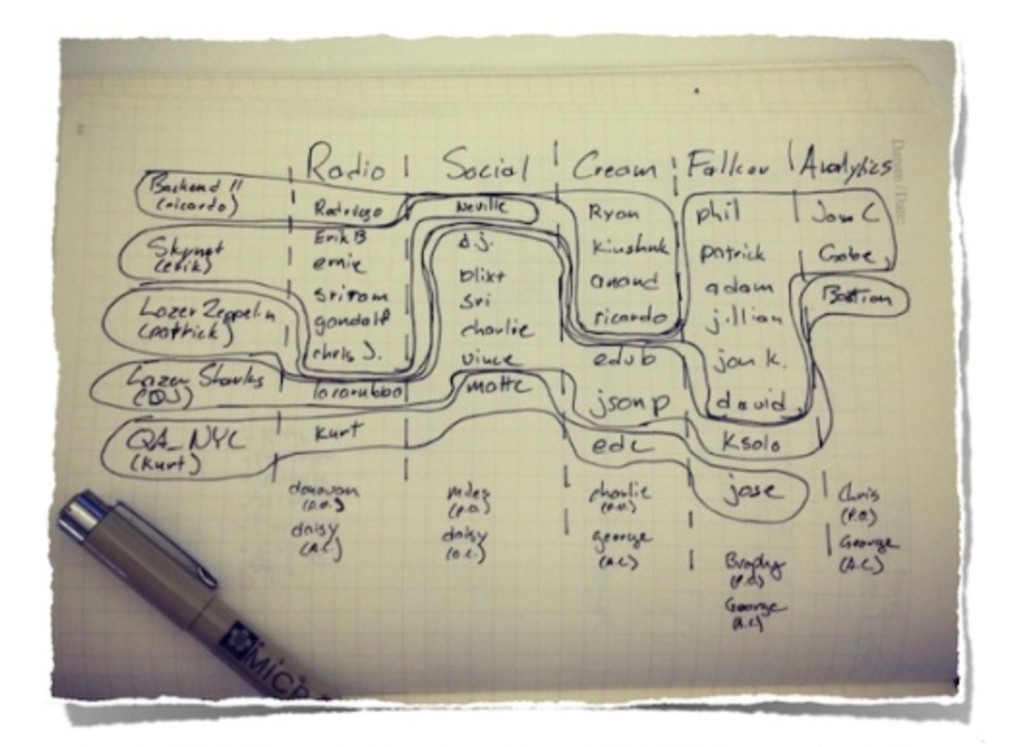 Radio Social Cream Falkcov Analytics
Backend 11
(ricardo)
Rodrigo Neville Ryan phil Jon C
Skynet
(erik)
Erik B d.j. Kiushnk patrick Gabe
ernie blixt anand adam Bastian
Lazer Zeppelin
(patrick)
sriram sri ricardo jillian
gandalf charlie edub jon k.
chris J. vince jsonp david
Lazer Sharks
(DJ)
locorubbo matte edc Ksolo
QA_NYC
(kurt)
Kurt jose
donovan miles charlie Chris
(P.O.) (P.O.) (P.O.) (P.O.)
daisy daisy george George
(A.C.) (A.C.) (A.C.) (A.C.)
Brophy
(P.O.)
George
(A.C.)
MICR